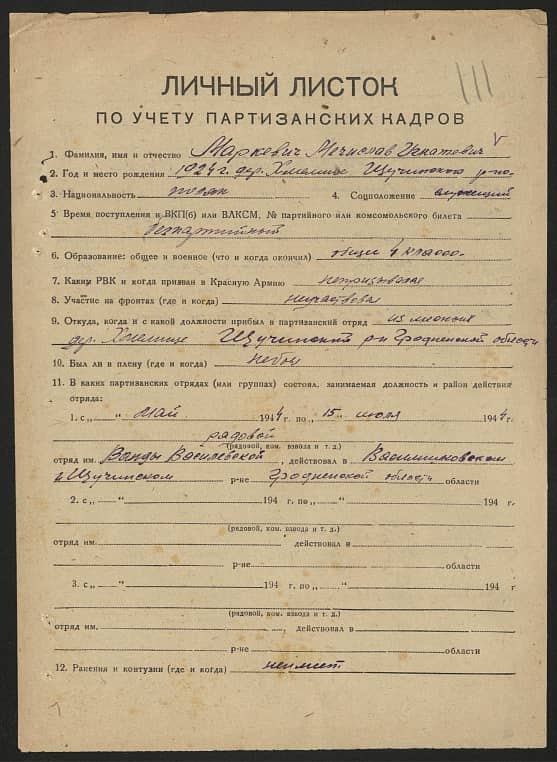 ЛИЧНЫЙ ЛИСТОК
ПО УЧЕТУ ПАРТИЗАНСКИХ КАДРОВ
1. Фамилия, имя и отчество Маркевич Мечислав Игнатевич
2. Год и место рождения 1924 г. дер. Хмелище Щучинского р-на
3. Национальность поляк 4. Соцположение служещий
5 Время поступления в ВКП(б) или ВЛКСМ, № партийного или комсомольского билета
безпартийный
6. Образование: общее и военное (что и когда окончил) общее 4 класса.
7. Каким РВК и когда призван в Красную Армию непризывался
8. Участие на фронтах (где и когда) неучаствовал
9. Откуда, когда и с какой должности прибыл в партизанский отряд из
дер. Хмелище Щучинский р-н Гродненской области
10. Был ли в плену (где и когда) небыл
11. В каких партизанских отрядах (или группах) состоял, занимаемая должность и район действия
отряда:
1. с „ “ май 1944 г. по „15“ июля 1944 г.
рядовой
(рядовой, ком. взвода и т. д.)
отряд им. Ванды Василевской, действовал в Василишковском
и Щучинском р-не Гродненской область области
2. с „ “ 194 г. по „ “ 194 г.
(рядовой, ком. взвода и т. д.)
отряд им. действовал в
р-не области
3. с „ “ 194 г. по „ “ 194 г
(рядовой, ком. взвода и т. д.)
отряд им. , действовал в
р-не области
12. Ранения и контузии (где и когда) неимеет